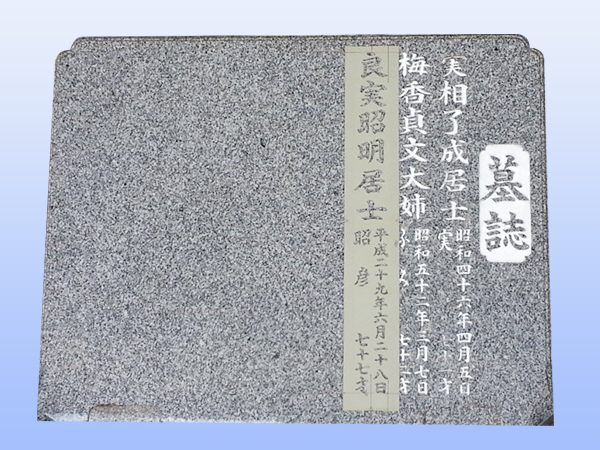 墓誌
実相了成居士
昭和四十六年四月五日
実 才
梅香貞文大姉
昭和五十二年三月七日
七十二才
良実昭明居士
平成二十九年六月二十八日
昭彦 七十七才